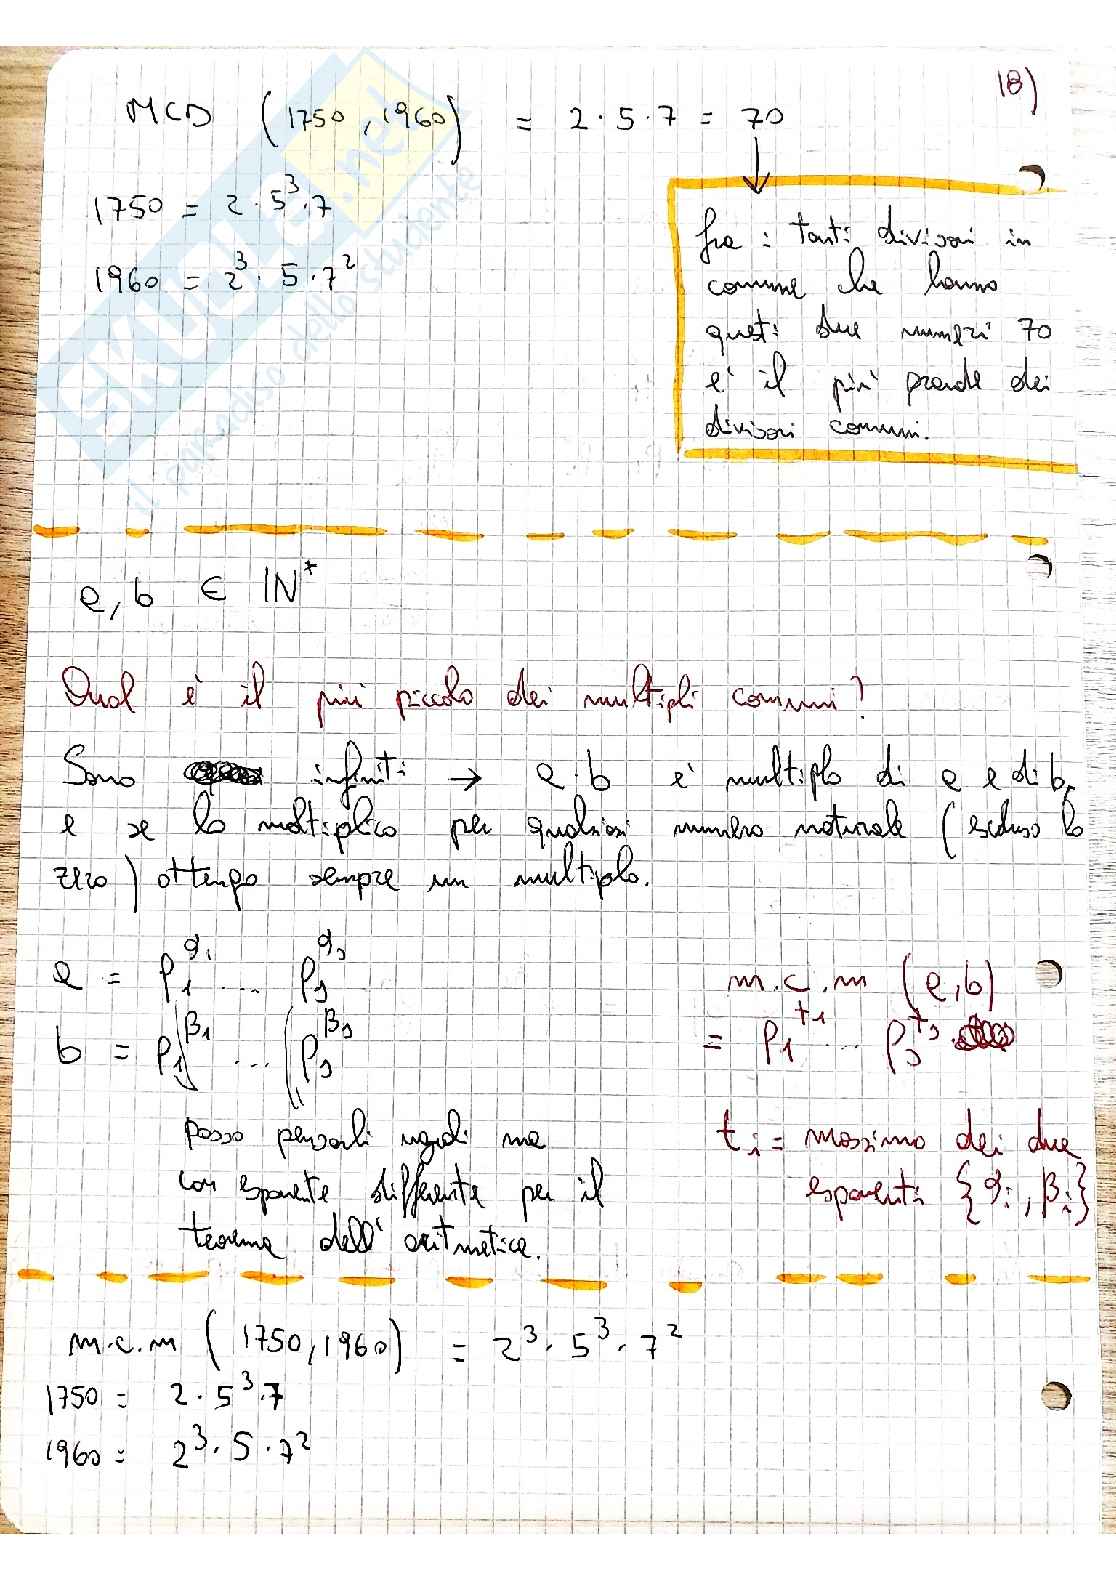 18)
MCD (1750, 1960) = 2·5·7 = 70
1750 = 2·5³·7
1960 = 2³·5·7²
fra i tanti divisori in
comune che hanno
questi due numeri 70
e' il piu' grande dei
divisori comuni.
a, b ∈ ℕ*
Qual e' il piu piccolo dei multipli comuni?
Sono infiniti → a·b e' multiplo di a e di b,
e se lo moltiplico per qualsiasi numero naturale (escluso lo
zero) ottengo sempre un multiplo.
a = p₁^α₁ ... pₛ^αₛ
b = p₁^β₁ ... pₛ^βₛ
posso pensarli uguali ma
con esponente differente per il
teorema dell' aritmetica.
m.c.m (a,b)
= p₁^t₁ ... pₛ^tₛ
tᵢ = massimo dei due
esponenti {αᵢ, βᵢ}
m.c.m (1750, 1960) = 2³·5³·7²
1750 = 2·5³·7
1960 = 2³·5·7²
SKUOLA.net
il paradiso dello studente